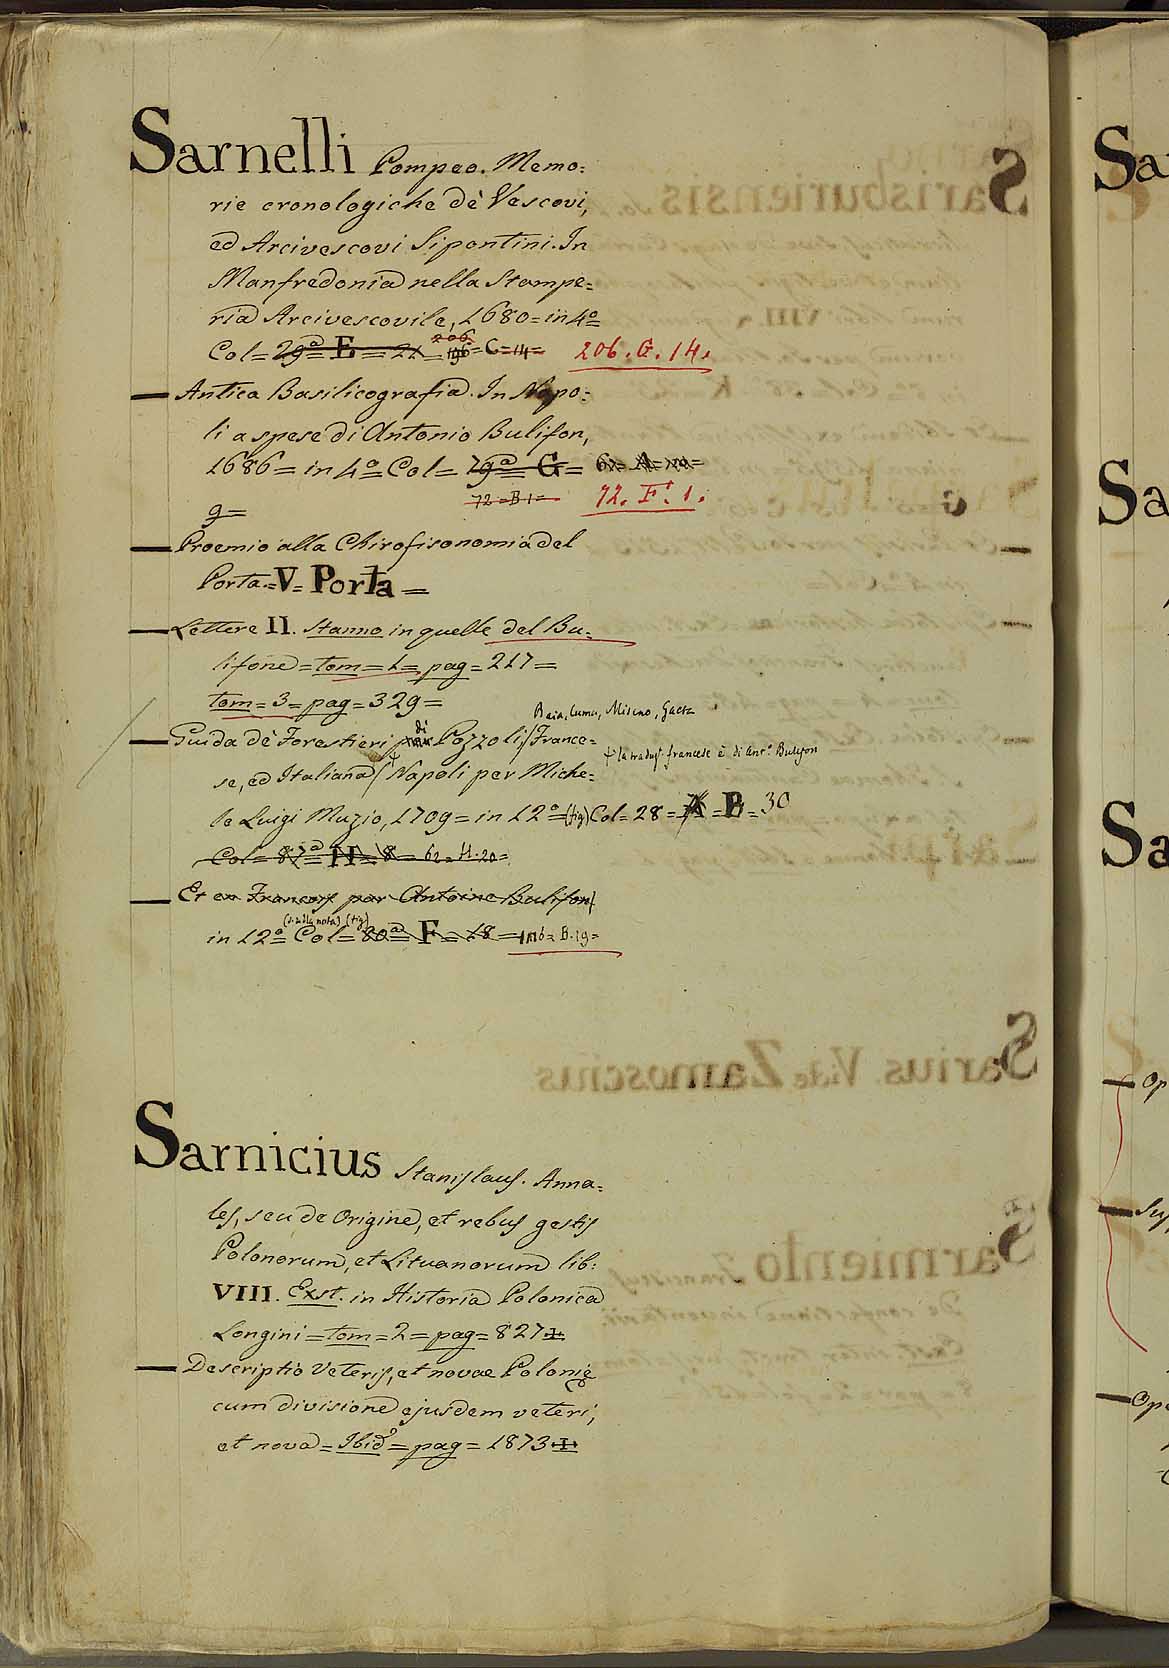 Sarnelli Pompeo. Memo:
rie cronologiche dè Vescovi,
ed Arcivescovi Sipontini. In
Manfredonia nella Stampe:
ria Arcivescovile, 1680 = in 4º =
Col = 29ª = E = 21 = 196 = G = 14 = 206. G. 14.
206
— Antica Basilicografia. In Napo:
li a spese di Antonio Bulifon,
1686 = in 4º = Col = 79ª = G =
72 = B 1 = 72. F. 1.
9 =
— Proemio alla Chirofisonomia del
Porta. = V = Porta =
— Lettere II. Stanno in quelle del Bu:
lifone = tom = 1 = pag = 217 =
tom = 3 = pag = 329 =
Baia, Cuma, Miseno, Gaeta
— Guida dè Forestieri di Pozzoli, France:
† la traduz francese è di Antº Bulifon
se, ed Italiana / Napoli per Miche:
le Luigi Muzio, 1709 = in 12º = (fig) Col = 28 = A = B = 30
Col = 87ª = H = 8 = 62 = H. 20 =
— Et en Francois par Antoine Bulifon
(fig)
in 12º = Col = 80ª = F = 18 = B. 19 =
Sarnicius Stanislaus. Anna:
les, seu de Origine, et rebus gestis
Polonorum, et Lituanorum lib:
VIII. Exst. in Historia Polonica
Longini = tom = 2 = pag = 827 =
— Descriptio Veteris, et novae Polonię
cum divisione ejusdem veteri,
et nova = Ibid = pag = 1873
Sa
Sa
Sa
— Op
— Op